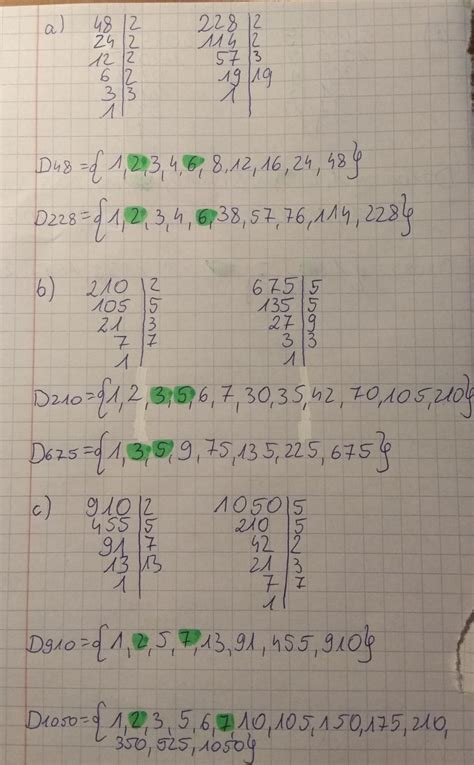 a) 48 | 2 228 | 2
24 | 2 114 | 2
12 | 2 57 | 3
6 | 2 19 | 19
3 | 3 1
1
D48={1,2,3,4,6,8,12,16,24,48}
D228={1,2,3,4,6,38,57,76,114,228}
b) 210 | 2 675 | 5
105 | 5 135 | 5
21 | 3 27 | 9
7 | 7 3 | 3
1 1
D210={1,2,3,5,6,7,30,35,42,70,105,210}
D675={1,3,5,9,75,135,225,675}
c) 910 | 2 1050 | 5
455 | 5 210 | 5
91 | 7 42 | 2
13 | 13 21 | 3
1 7 | 7
1
D910={1,2,5,7,13,91,455,910}
D1050={1,2,3,5,6,7,10,105,150,175,210,
350,525,1050}